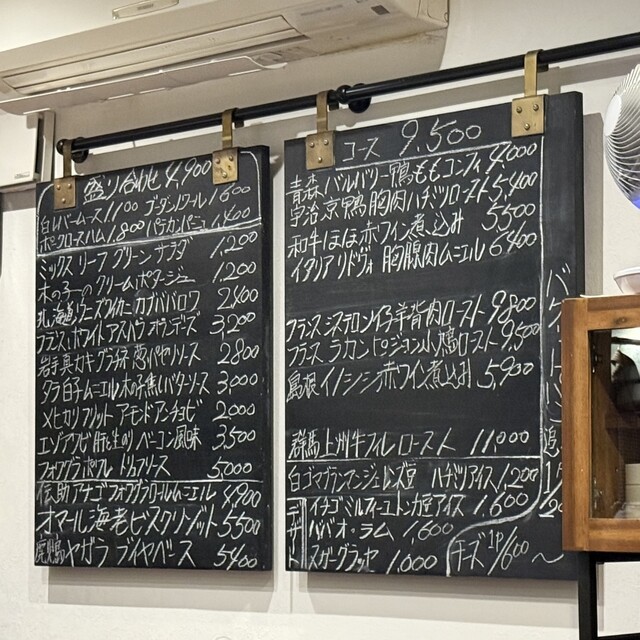 盛り合わせ 4,900
白レバームース 1,100 ゴダンロワール 1,600
ポークロースハム 1,800 パテカンパーニュ 1,400
ミックス リーフ グリーン サラダ 1,200
木の子のクリームポタージュ 1,200
北海道ズワイカニ カブババロワ 2,400
フランス ホワイトアスパラ オランデーズ 3,200
岩手真カキグラチネ パセリソース 2800
タラ白子ムニエル 木の子焦しバターソース 3,000
メヒカリフリット アモンドアンチョビ 2000
エゾアワビ 肝と生のり ベーコン風味 3,500
フォワグラポワレ トリュフソース 5000
伝助アナゴフォワグラロールムニエル 4,900
オマール海老ビスクリゾット 5,500
ヤガラ ブイヤベース 5400
コース 9,500
青森 バルバリー鴨ももコンフィ 4,000
宇治 京鴨胸肉ハチミツロースト 5,400
和牛ほほ赤ワイン煮込み 5,500
イタリア リドヴォ 胸腺肉ムニエル 6400
フランス シストロン仔羊背肉ロースト 9800
フランス ラカン ピジョン小鳩ロースト 9,500
島根 イノシシ赤ワイン煮込み 5,900
群馬上州牛フィレロースト 11,000
白ゴマブランマンジェ レンズ豆 ハチミツアイス 1,200
イチゴミルフィーユ トンカ豆アイス 1,600
ババ オ・ラム 1,600
スガーグラッセ 1,000
デザート
チーズ 1P/600〜
バゲット
追